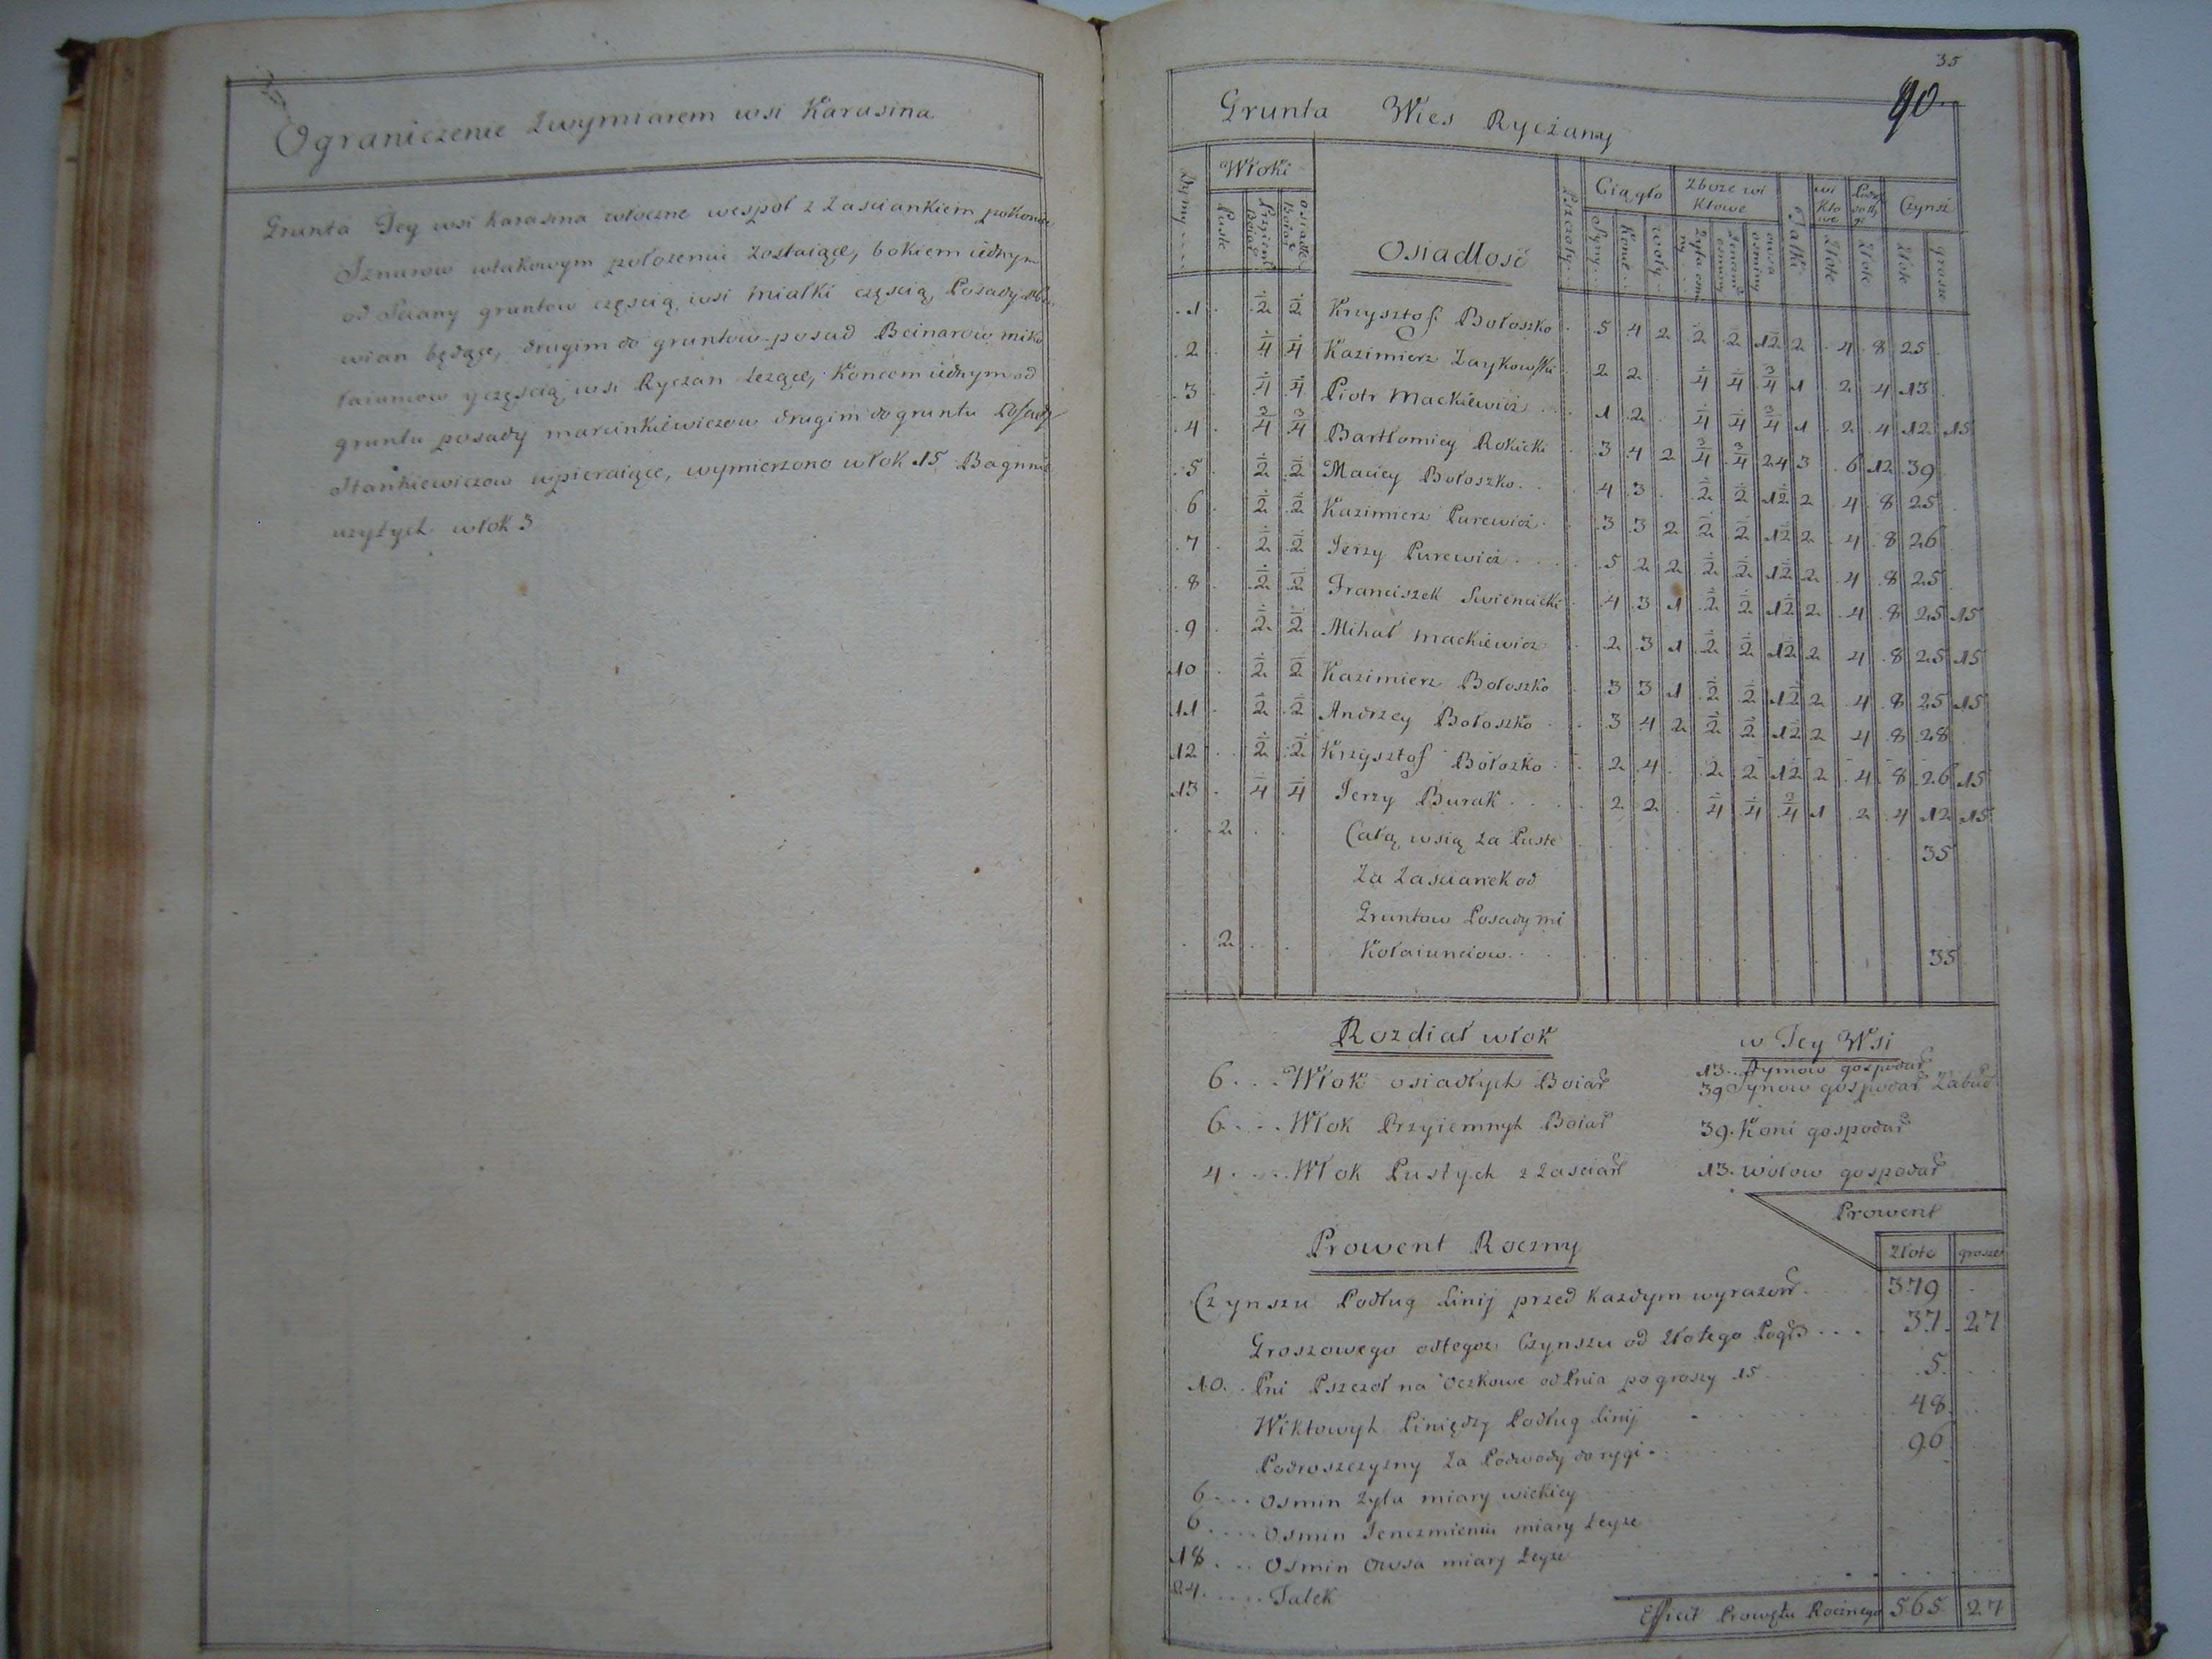 Ograniczenie Zwymiarem wsi Karasina.
Grunta Tey wsi karasina włoczne wespoł z Zasciankiem
Sznurow wtakowym położeniu Zostaiące, bokiem iednym
od Sciany gruntow częscią wsi Miałki częscią, Posady
wian będące, drugim do gruntow posad Beinarow miko
łaiunow y częscią wsi Ryczan Leżące, Koncem iednym od
gruntu posady marcinkiewiczow drugim do gruntu Posady
Stankiewiczow wpieraiące, wymierzono włok 15, Bagnnie
użytych włok 3
35
90.
Grunta Wies Ryczany
Dymy
Włoki
Puste
Przyiem Boiar
osiadłe Boiar
Osiadłosć
Pszczoły
Ciągło
Synny
Konie
woły
Zboże wi
ktowe
Żyta osm
Jenczmie osminy
owsa osminy
Talki
wi
kto
we
Złote
Podw
Złote
Czynsz
Złote
grosze
.1. .2. 2. Krzysztof Bołoszko . 5 4 2 .2. .2. 12 2 . 4 8 25
2. 4 4 Kazimierz Zaykowski . 2 2 . 4 4 3/4 1 . 2 4 13
3. 4 4 Piotr Mackiewicz . . 1 2 . 4 4 3/4 1 . 2 4 12 15
4. 3/4 3/4 Bartłomiey Rokicki . 3 4 2 3/4 3/4 24 3 . 6 12 39
5. 2 2 Maciey Bołoszko . . 4 3 . 2 2 12 2 . 4 8 25
6. 2 2 Kazimierz Purewicz . 3 3 2 2 2 12 2 . 4 8 26
7. 2 2 Jerzy Purewicz . . . 5 2 2 2 2 12 2 . 4 8 25
8. 2 2 Franciszek Swiencicki . 4 3 1 2 2 12 2 . 4 8 25 15
9. 2 2 Mihał Mackiewicz . 2 3 1 2 2 12 2 4 8 25 15
10. 2 2 Kazimierz Bołoszko . 3 3 1 2 2 12 2 . 4 8 25 15
11. 2 2 Andrzey Bołoszko . . 3 4 2 2 2 12 2 4 8 28
12. 2 2 Krzysztof Bołożko . . 2 4 . 2 2 12 2 4 8 26 15
13. 4 4 Jerzy Burak . . . 2 2 . 4 4 3/4 1 2 4 12 15
. 2 . . Całą wsią za Puste 35
Za Zascianek od
Gruntow Posady mi
. 2 . . kołaiunciow . 35
Rozdiał włok
w Tey Wsi
13 . . Dymow gospodar
6 . . . Włok osiadłych Boiar
39 Synow gospodar Zabud
6 . . . Włok Przyiemnyh Boiar
39. Koni gospodar
4 . . . Włok Pustych z Zascian
13. wołow gospodar
Prowent
Prowent Roczny
Złote grosze
Czynszu Podług Linij przed każdym wyrażon . . 379 .
Groszowego odtegoż Czynszu od Złotego . . . . 37. 27
10. . Pni Pszczoł na Oczkowe od Pnia po groszy 15 . . 5. .
Wiktowyh Pieniędzy Podług Linij . . 48
Podroszczyzny Za Podwody do rygi . . . 96
6 . . . Osmin Zyta miary wielkiey
6 . . . . Osmin Jenczmieniu miary teyże
18 . . . Osmin Owsa miary teyże
24 . . . . . Talek
Efficit Prowętu Rocznego 565 27